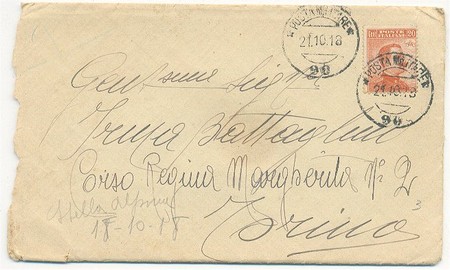 POSTA MILITARE
21.10.18
90
20 POSTE ITALIANE 20
POSTA MILITARE
21.10.18
90
Gent.sime Sig.
Irma Battaglini
Corso Regina Margherita N° 2
Torino
3
18-10-18